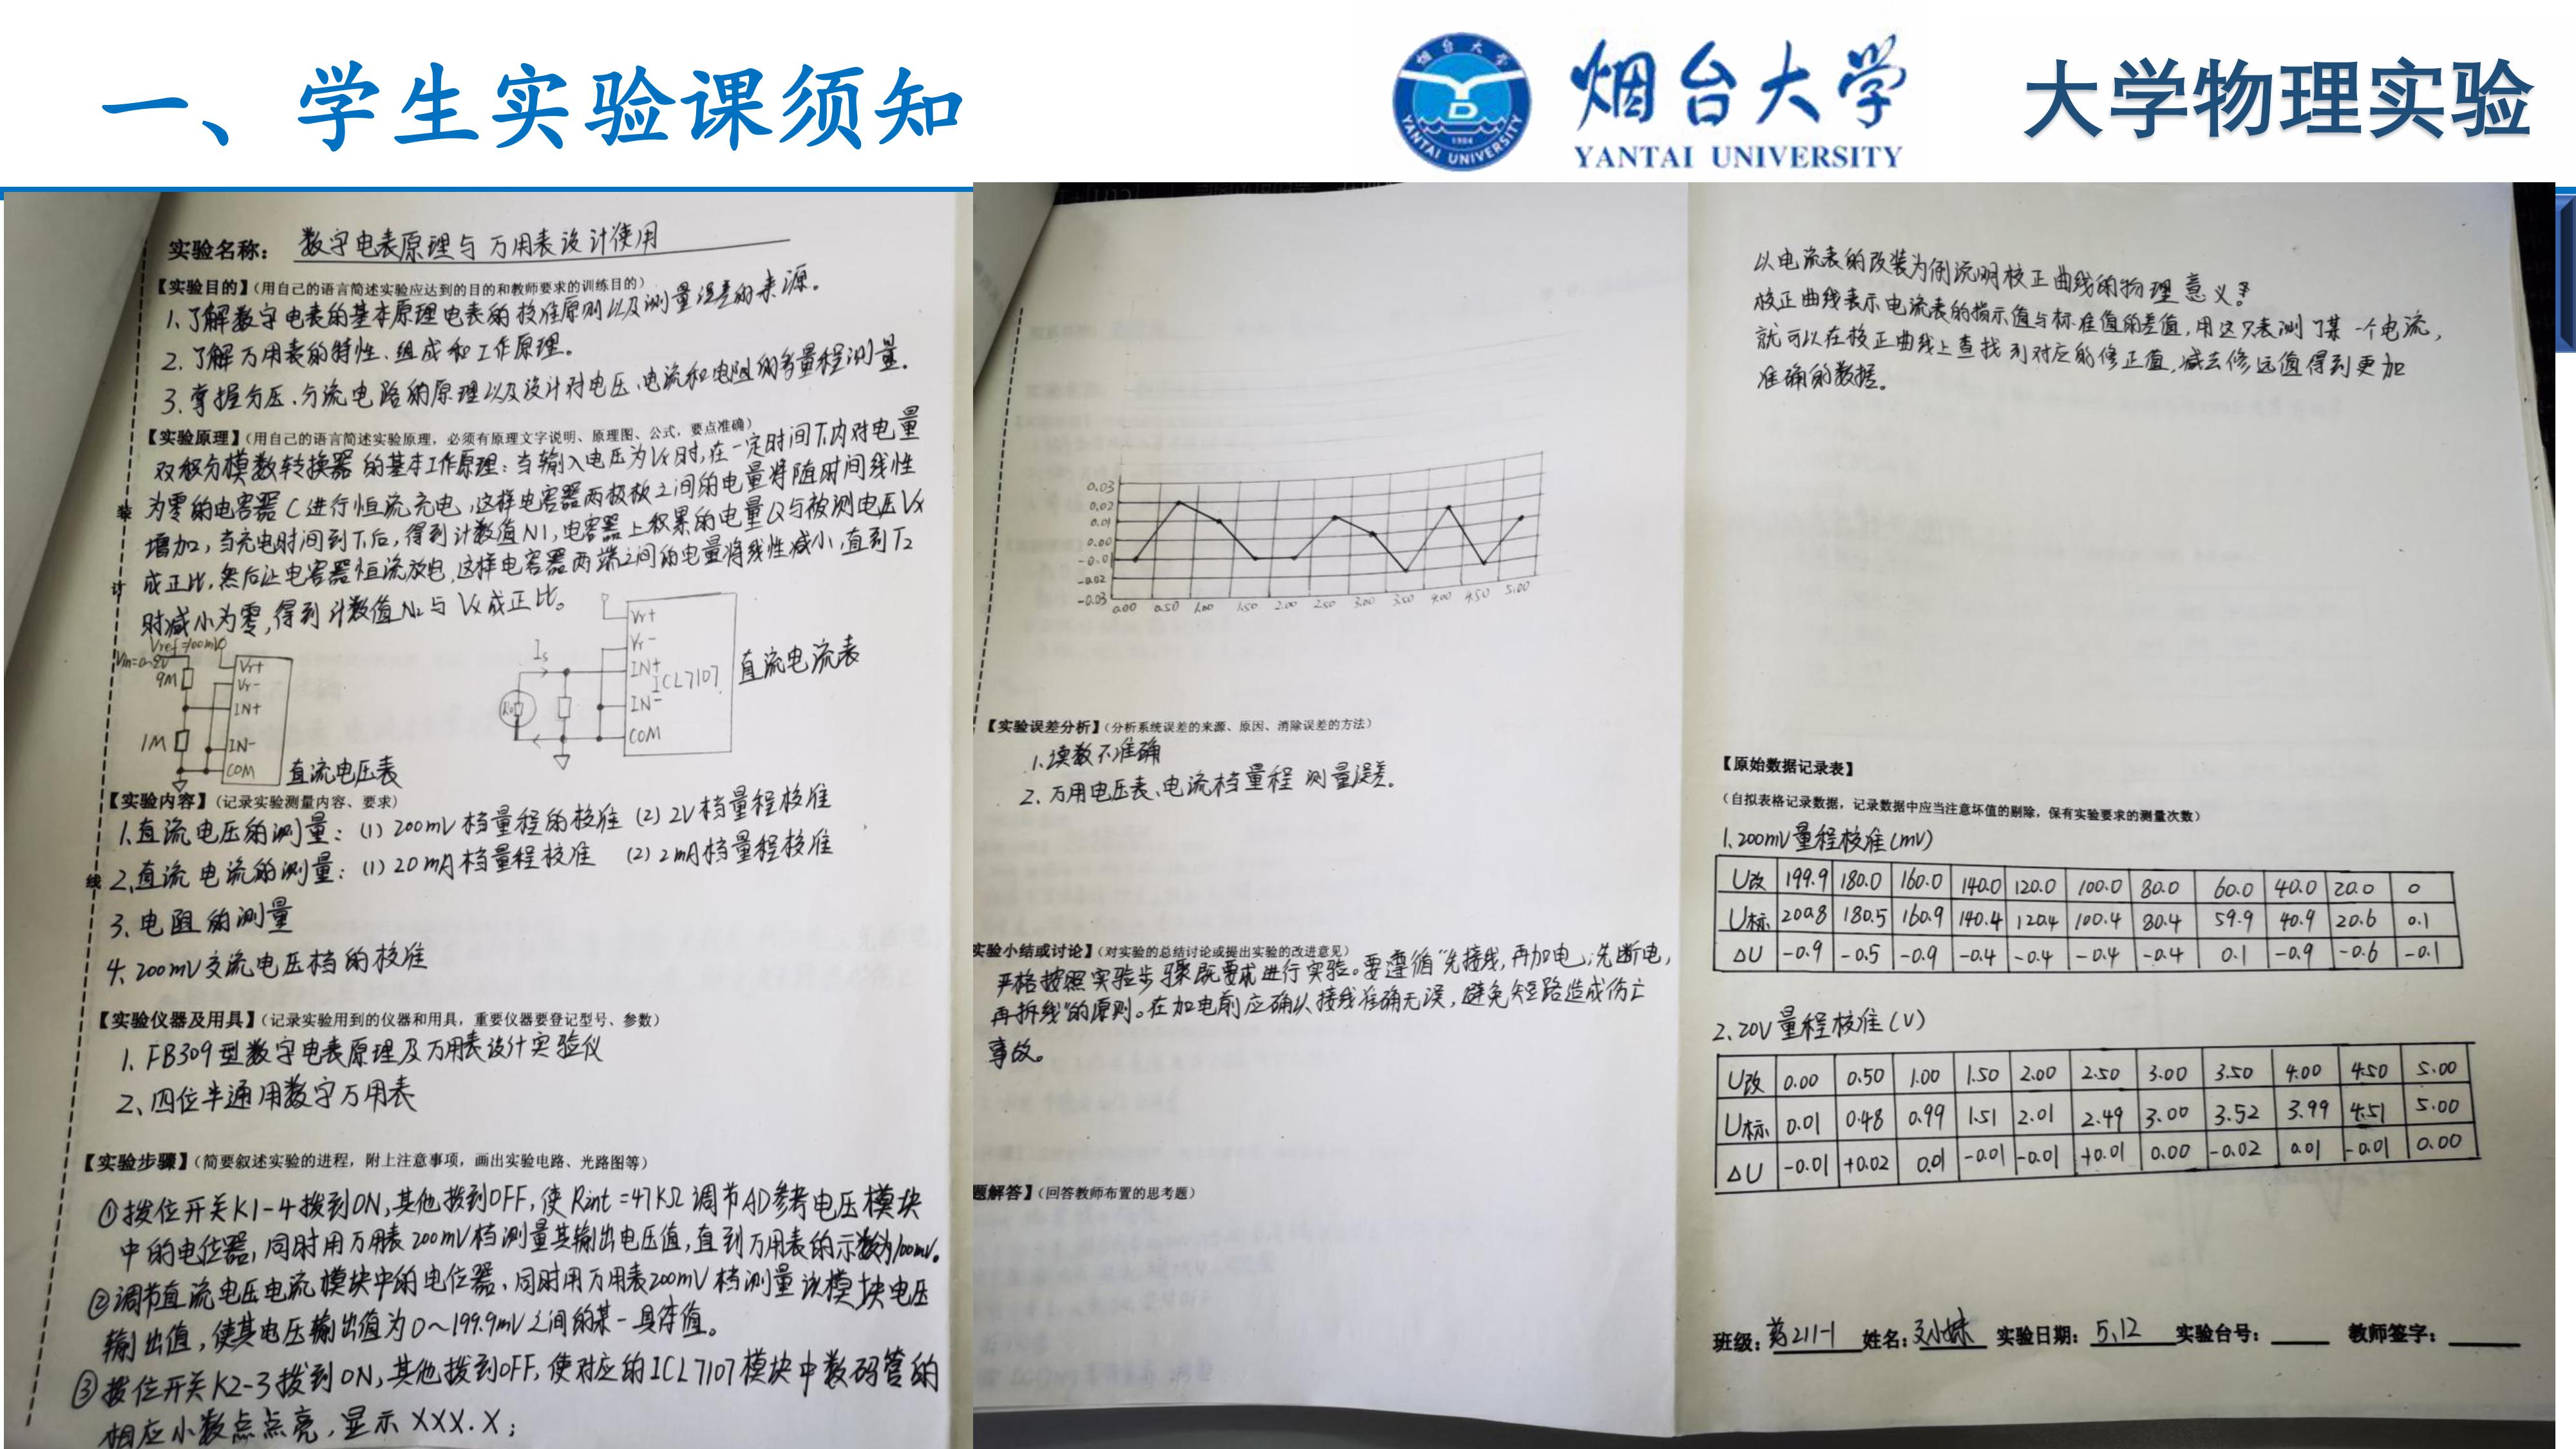 一、学生实验课须知
烟台大学
YANTAI UNIVERSITY
1984
大学物理实验
实验名称： 数字电表原理与万用表设计使用
【实验目的】（用自己的语言简述实验应达到的目的和教师要求的训练目的）
1、了解数字电表的基本原理电表的校准原则以及测量误差的来源。
2、了解万用表的特性、组成和工作原理。
3、掌握分压、分流电路的原理以及设计对电压、电流和电阻的多量程测量。
【实验原理】（用自己的语言简述实验原理，必须有原理文字说明、原理图、公式，要点准确）
双积分模数转换器的基本工作原理：当输入电压为Vx时，在一定时间T1内对电量
为零的电容器C进行恒流充电，这样电容器两极板之间的电量将随时间线性
增加，当充电时间到T1后，得到计数值N1，电容器上积累的电量Q与被测电压Vx
成正比，然后让电容器恒流放电，这样电容器两端之间的电量将线性减小，直到T2
时减小为零，得到计数值N2与Vx成正比。
装
订
线
Vref=100mV
Vin=0-2V
9M
1M
Vr+
Vr-
IN+
IN-
COM
直流电压表
Is
Vr+
Vr-
IN+
ICL7107
IN-
COM
直流电流表
【实验内容】（记录实验测量内容、要求）
1.直流电压的测量：(1) 200mV档量程的校准 (2) 2V档量程校准
2、直流电流的测量：(1) 20mA档量程校准 (2) 2mA档量程校准
3、电阻的测量
4、200mV交流电压档的校准
【实验仪器及用具】（记录实验用到的仪器和用具，重要仪器要登记型号、参数）
1. FB309型数字电表原理及万用表设计实验仪
2、四位半通用数字万用表
【实验步骤】（简要叙述实验的进程，附上注意事项，画出实验电路、光路图等）
①拨位开关K1-4拨到ON，其他拨到OFF，使Rint=47KΩ调节AD参考电压模块
中的电位器，同时用万用表200mV档测量其输出电压值，直到万用表的示数为100mV。
②调节直流电压电流模块中的电位器，同时用万用表200mV档测量该模块电压
输出值，使其电压输出值为0～199.9mV之间的某一具体值。
③拨位开关K2-3拨到ON，其他拨到OFF，使对应的ICL7107模块中数码管的
相应小数点点亮，显示XXX.X；
0.03
0.02
0.01
0.00
-0.01
-0.02
-0.03
0.00 0.50 1.00 1.50 2.00 2.50 3.00 3.50 4.00 4.50 5.00
【实验误差分析】（分析系统误差的来源、原因、消除误差的方法）
1.读数不准确
2. 万用电压表、电流档量程 测量误差。
实验小结或讨论】（对实验的总结讨论或提出实验的改进意见）
严格按照实验步骤既要求进行实验。要遵循“先接线，再加电；先断电，
再拆线”的原则。在加电前应确认接线准确无误，避免短路造成伤亡
事故。
题解答】（回答教师布置的思考题）
以电流表的改装为例说明校正曲线的物理意义？
校正曲线表示电流表的指示值与标准值的差值，用这只表测了某一个电流，
就可以在校正曲线上查找到对应的修正值，减去修正值得到更加
准确的数据。
【原始数据记录表】
（自拟表格记录数据，记录数据中应当注意坏值的剔除，保有实验要求的测量次数）
1.200mV量程校准(mV)
U改 199.9 180.0 160.0 140.0 120.0 100.0 80.0 60.0 40.0 20.0 0
U标 200.8 180.5 160.9 140.4 120.4 100.4 80.4 59.9 40.9 20.6 0.1
ΔU -0.9 -0.5 -0.9 -0.4 -0.4 -0.4 -0.4 0.1 -0.9 -0.6 -0.1
2.20V量程校准(V)
U改 0.00 0.50 1.00 1.50 2.00 2.50 3.00 3.50 4.00 4.50 5.00
U标 0.01 0.48 0.99 1.51 2.01 2.49 3.00 3.52 3.99 4.51 5.00
ΔU -0.01 +0.02 0.01 -0.01 -0.01 +0.01 0.00 -0.02 0.01 -0.01 0.00
班级：药211-1 姓名： 实验日期：5.12 实验台号： 教师签字：